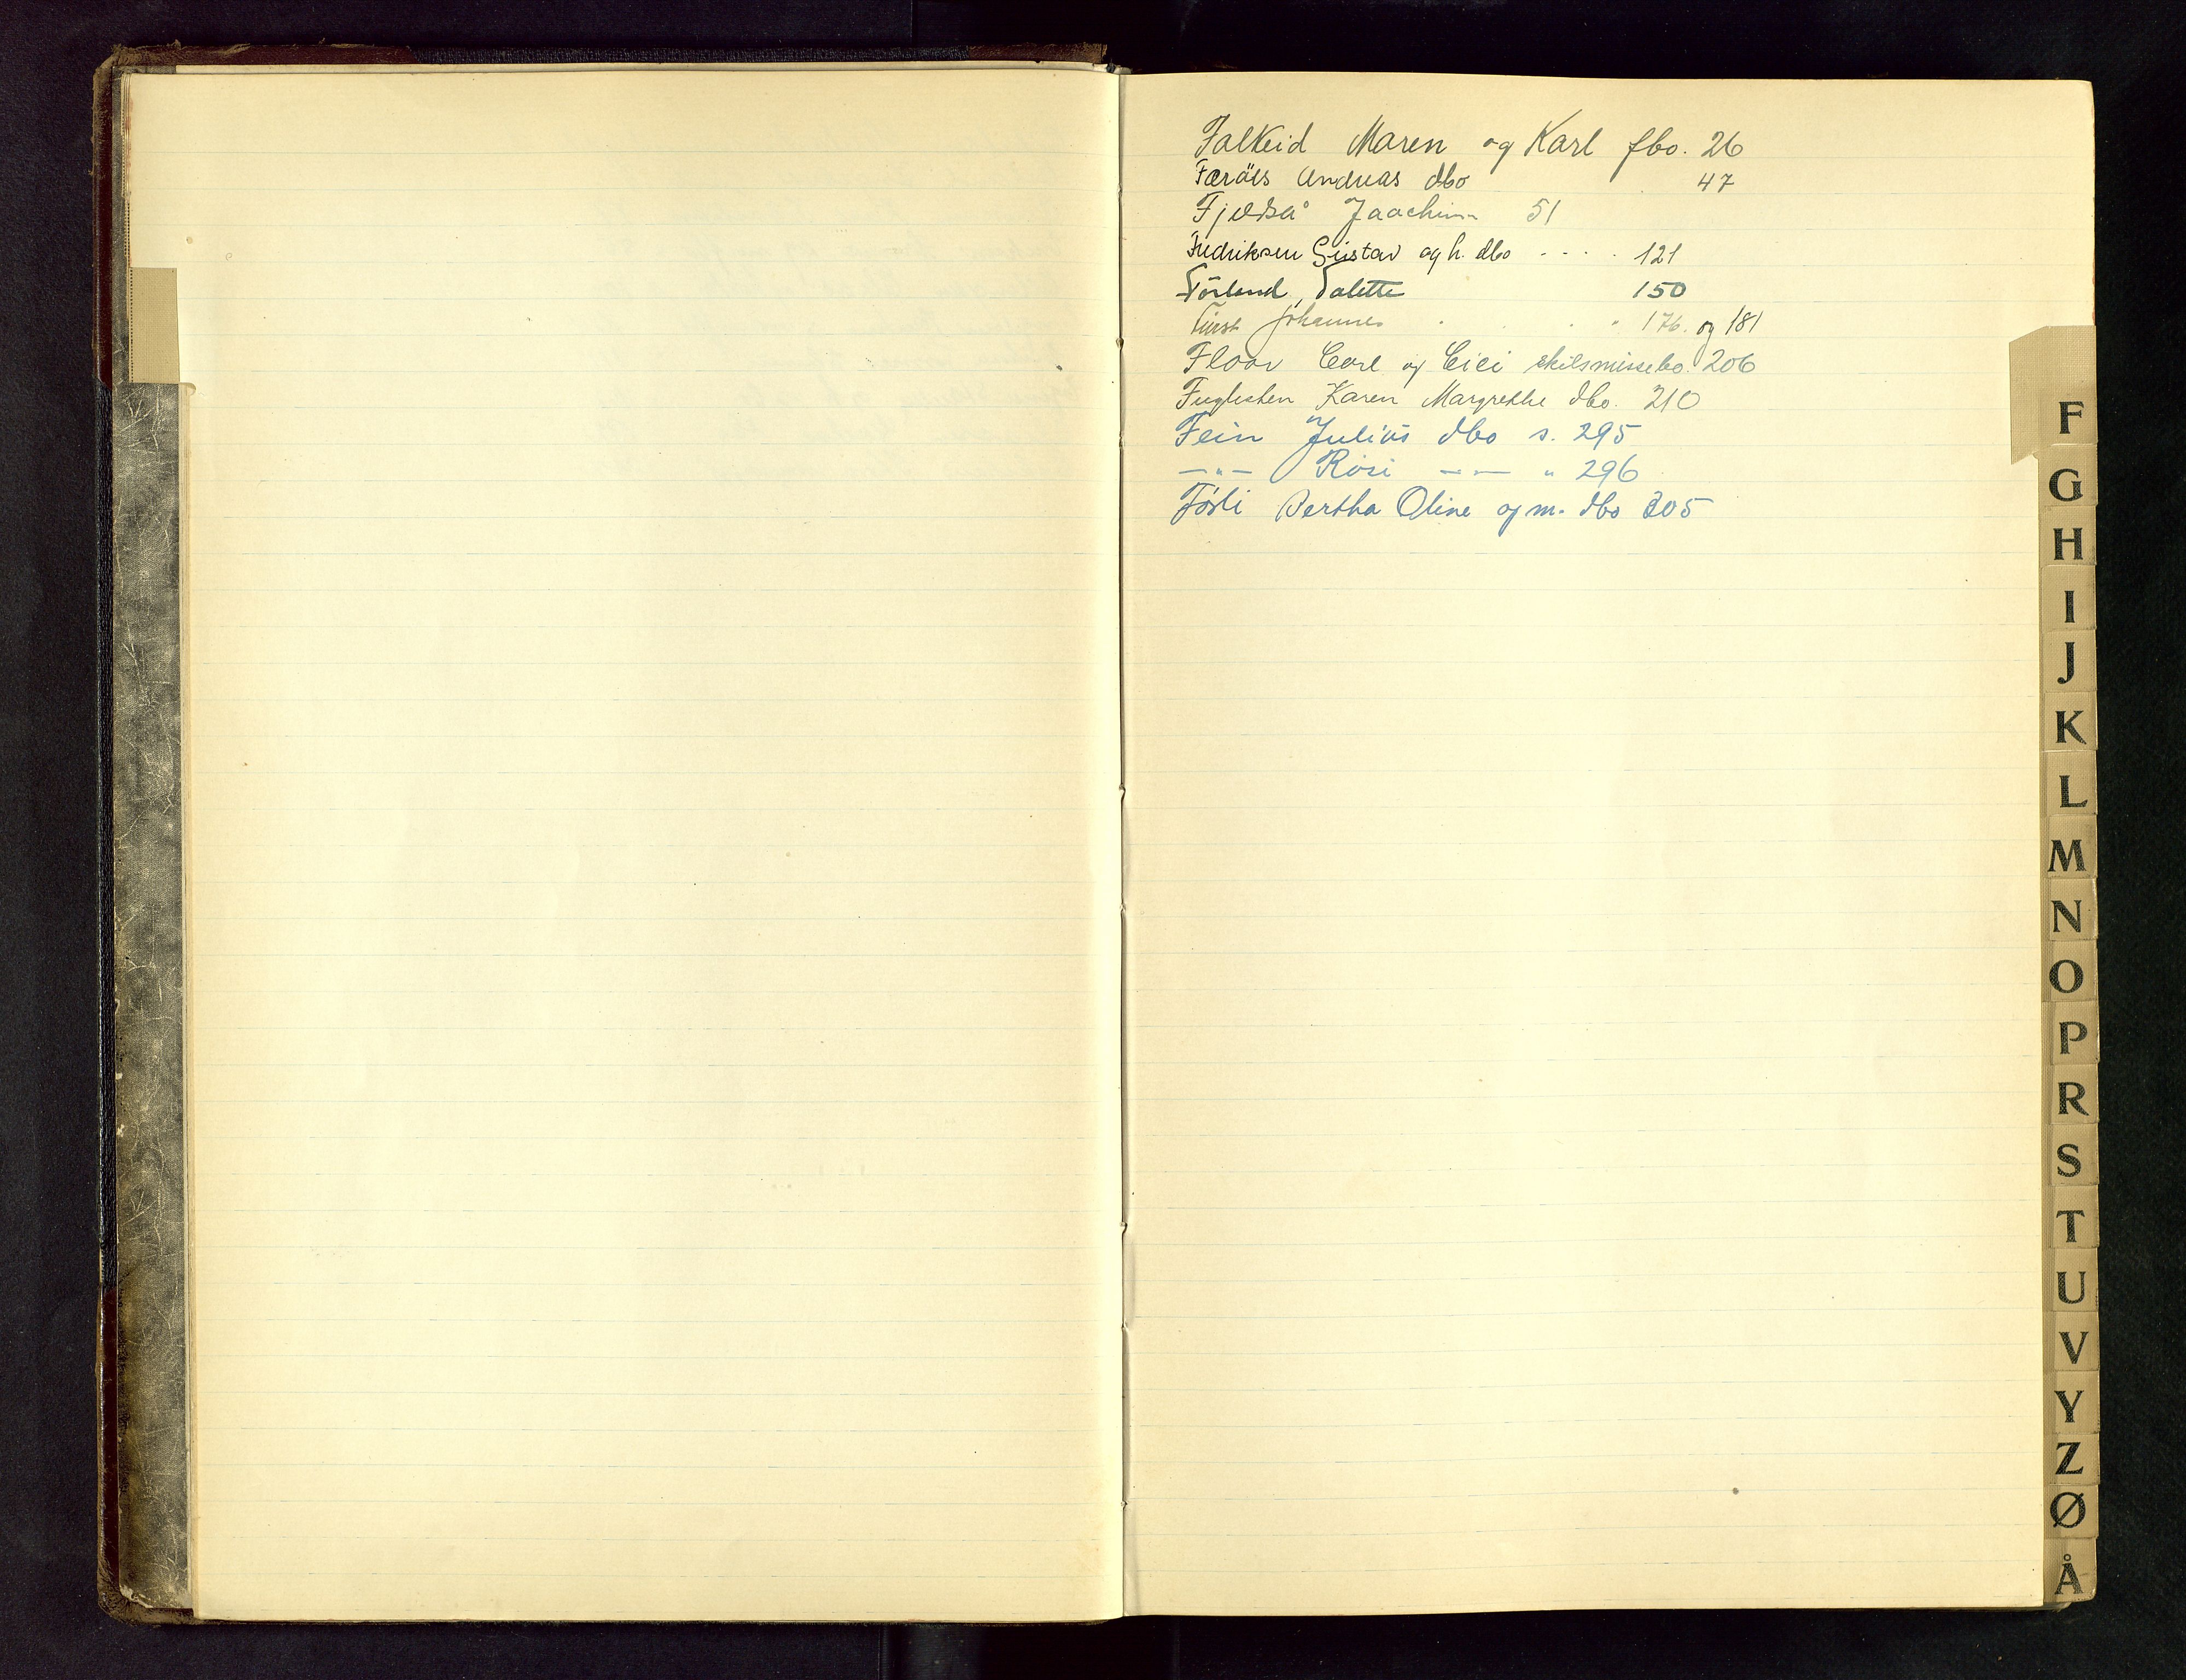 Falkeid Maren og Karl fbo. 26
Færäes Andreas dbo 47
Fjeldså Joachim 51
Fredriksen Gustav og h. dbo .... 121
Förland, Valette 150
Fürst Johannes . . . . 176. og 181
Floor Carl og Cici skilsmissebo. 206
Fuglesten Karen Margrethe dbo. 210
Fein Julius dbo s. 295
—"— Rosi —"— " 296
Fösli Bertha Oline og m. dbo 305
F
G
H
I
J
K
L
M
N
O
P
R
S
T
U
V
Y
Z
Ø
Å